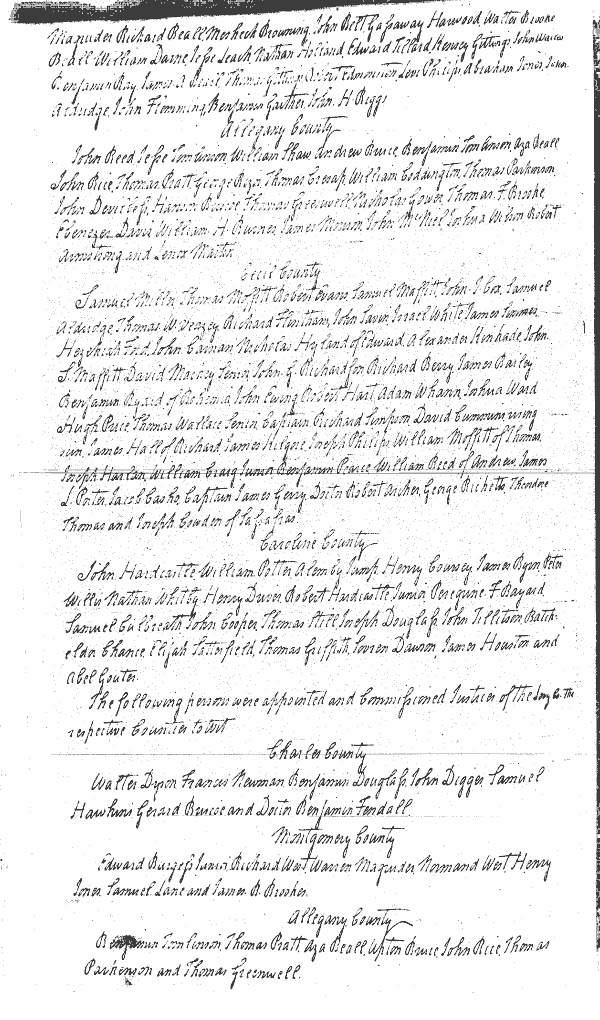 Magruder Richard Beall Mesheck Browning, John Belt Gassaway Harwood, Walter Brooke
Beall William Darne Jesse Leach Nathan Holland, Edward Tillard, Henry Gittings, John Warren
Benjamin Ray, James A Beall, Thomas Gittings, Robert Edmonston, Levi Philips, Abraham Jones, John
Aldridge, John Flemming, Benjamin Gaither, John H Riggs
Allegany County
John Reed Jesse Tomlinson William Shaw Andrew Bruce, Benjamin Tomlinson Aza Beall
John Rice, Thomas Pratt, George Rizer, Thomas Cresap, William Coddington, Thomas Parkinson,
John Devilbiss, Hanson Briscoe Thomas Greenwell, Nicholas Gower, Thomas F. Brooke,
Ebenezer Davis William H Burnes, James Morison, John McNiel Joshua Wilson Robert
Armstrong and Lenox Martin
Cecil County
Samuel Miller, Thomas Moffitt Robert Evans, Samuel Moffitt, John I Cox, Samuel
Aldridge Thomas W. Veazey Richard Flintham, John Savin, Israel White James Simmes
Hezekiah Ford, John Carnan, Nicholas Hyland of Edward, Alexander Kinkade, John
S. Moffitt, David Mackey Senior, John G. Richardson Richard Berry James Bailey
Benjamin Byard of Bohemia, John Ewing, Robert Hart, Adam Whann, Joshua Ward
Hugh Price Thomas Wallace Senior, Captain Richard Simpson David Cummings
James Hall of Richard James Kilgore Joseph Philips William Moffitt of Thomas
Joseph Harlan, William Craig Junior Benjamin Pearce William Reed of Andrew, James
L. Porter, Jacob Casho, Captain James Gerry Doctor Robert Archer, George Ricketts, Theodore
Thomas and Joseph Cowden of Sassafras.
Caroline County
John Hardcastle William Potter Alemby Jump, Henry Coursey James Byron, Peter
Willis Nathan Whitby Henry Driver Robert Hardcastle, Junior Peregine F Bayard
Samuel Culbreath, John Cooper, Thomas Still Joseph Douglass, John Tillitson, Batch-
eldor Chance, Elijah Satterfield, Thomas Griffith, Lovren Dawson, James Houston and
Abel Gouter.
The following persons were appointed and Commissioned Justices of the Levy Co. The
respective Counties to wit
Charles County
Walter Dyson Francis Newman Benjamin Douglass, John Digges, Samuel
Hawkins Gerard Briscoe and Doctor Benjamin Fendall.
Montgomery County
Edward Burgess Junior, Richard West, Warren Magruder Normand West Henry
Jones Samuel Lane and James B. Brookes.
Allegany County
Benjamin Tomlinson, Thomas Pratt, Aza Beall, Upton Bruce, John Rice, Thomas
Parkenson and Thomas Greenwell.